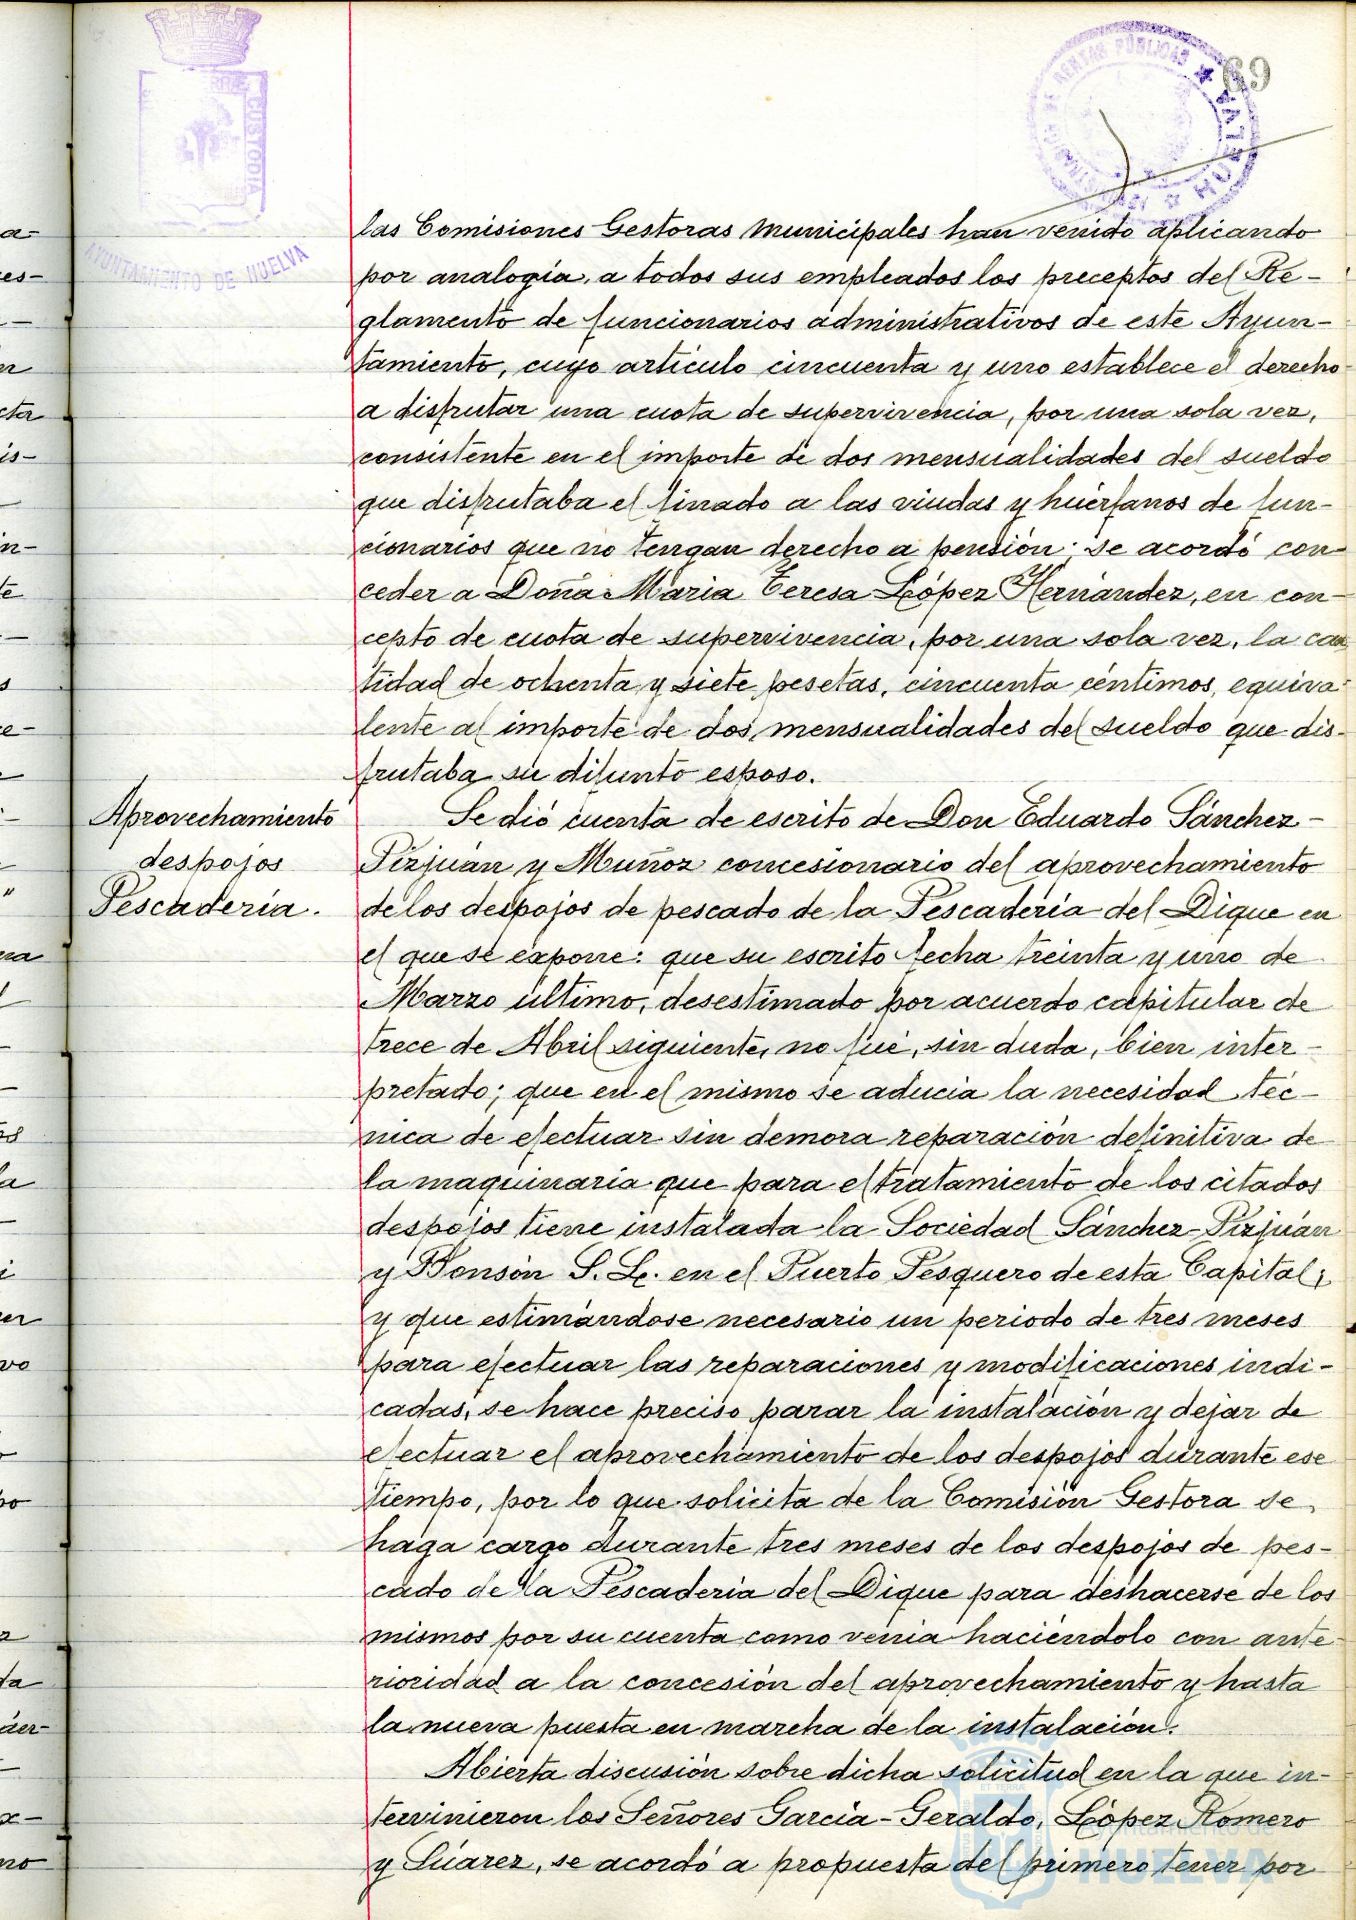 69
PORTUS MARIS ET TERRE CUSTODIA
AYUNTAMIENTO DE HUELVA
ADMINISTRACION DE RENTAS PÚBLICAS
HUELVA
las Comisiones Gestoras Municipales han venido aplicando
por analogía, a todos sus empleados los preceptos del Re-
glamento de funcionarios administrativos de este Ayun-
tamiento, cuyo artículo cincuenta y uno establece el derecho
a disfrutar una cuota de supervivencia, por una sola vez,
consistente en el importe de dos mensualidades del sueldo
que disfrutaba el finado a las viudas y huérfanos de fun-
cionarios que no tengan derecho a pensión; se acordó con-
ceder a Doña Maria Teresa López Hernández, en con-
cepto de cuota de supervivencia, por una sola vez, la can
tidad de ochenta y siete pesetas, cincuenta céntimos, equiva-
lente al importe de dos mensualidades del sueldo que dis-
frutaba su difunto esposo.
Aprovechamiento
despojos
Pescadería.
Se dió cuenta de escrito de Don Eduardo Sánchez-
Pizjuán y Muñoz concesionario del aprovechamiento
de los despojos de pescado de la Pescadería del Dique en
el que se expone: que su escrito fecha treinta y uno de
Marzo último, desestimado por acuerdo capitular de
trece de Abril siguiente, no fué, sin duda, bien inter-
pretado; que en el mismo se aducia la necesidad téc-
nica de efectuar sin demora reparación definitiva de
la maquinaria que para el tratamiento de los citados
despojos tiene instalada la Sociedad Sánchez-Pizjuán
y Monsón S. L. en el Puerto Pesquero de esta Capital;
y que estimándose necesario un periodo de tres meses
para efectuar las reparaciones y modificaciones indi-
cadas, se hace preciso parar la instalación y dejar de
efectuar el aprovechamiento de los despojos durante ese
tiempo, por lo que solicita de la Comisión Gestora se
haga cargo durante tres meses de los despojos de pes-
cado de la Pescaderia del Dique para deshacerse de los
mismos por su cuenta como venia haciéndolo con ante-
rioridad a la concesión del aprovechamiento y hasta
la nueva puesta en marcha de la instalación.
Abierta discusión sobre dicha solicitud en la que in-
tervinieron los Señores García-Geraldo, López Romero
y Súarez, se acordó a propuesta del primero tener por
Ayuntamiento de
HUELVA